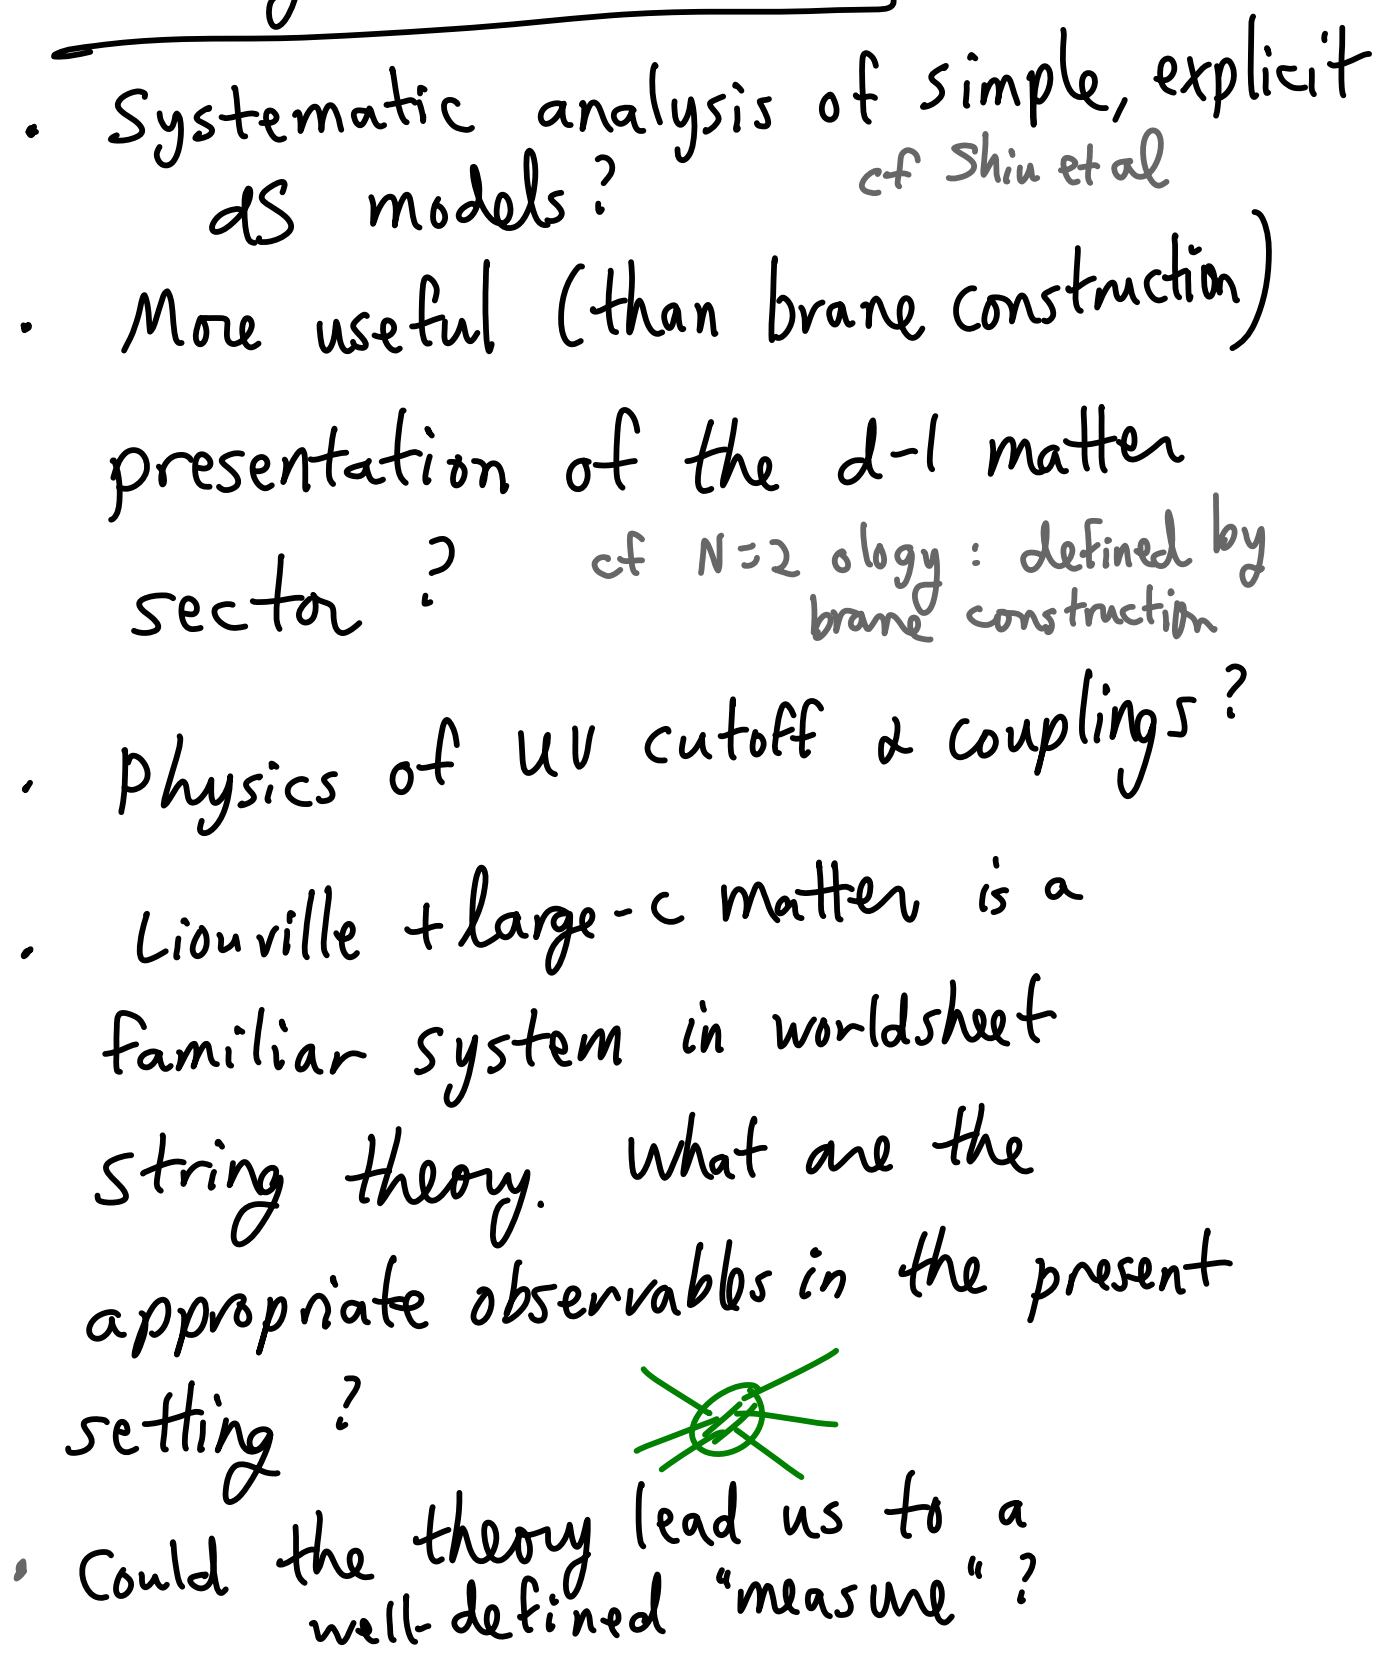 • Systematic analysis of simple, explicit
dS models?
cf Shiu et al
• More useful (than brane construction)
presentation of the d-1 matter
sector?
cf N=2 ology: defined by
brane construction
• Physics of UV cutoff & couplings?
• Liouville + large-c matter is a
familiar system in worldsheet
string theory. What are the
appropriate observables in the present
setting?
• Could the theory lead us to a
well-defined "measure"?